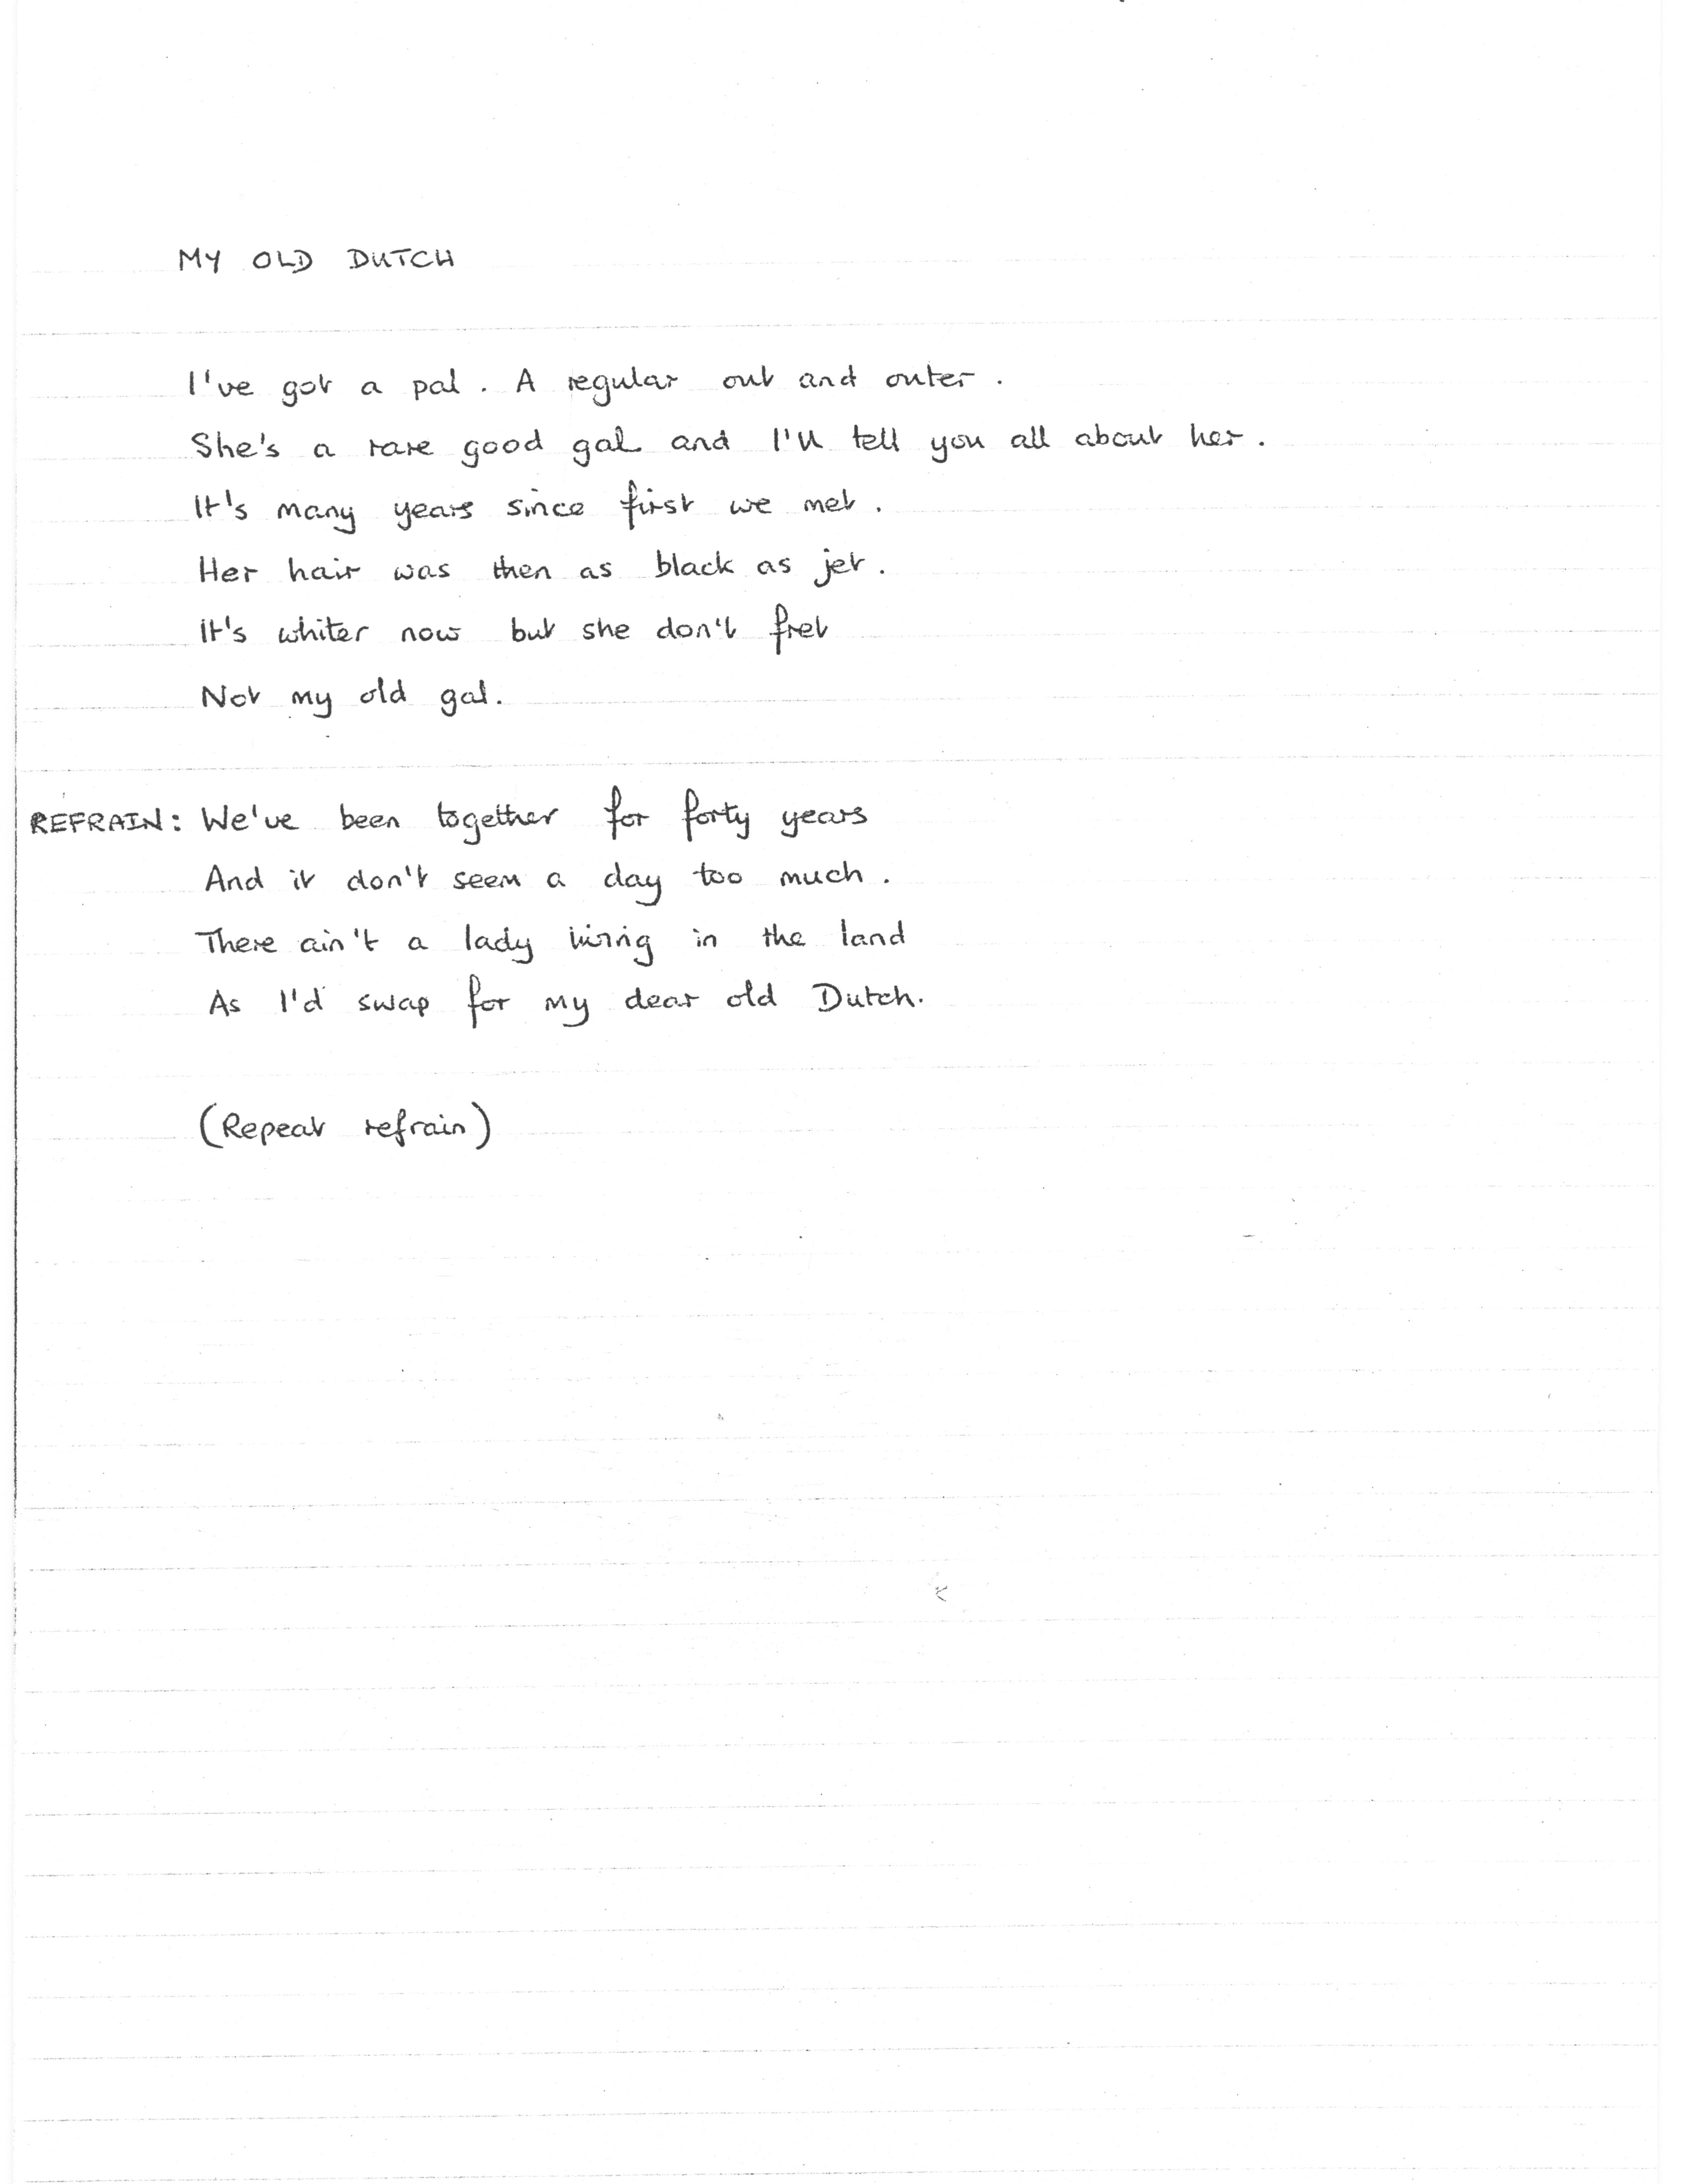 MY OLD DUTCH
I've got a pal. A regular out and outer.
She's a rare good gal and I'll tell you all about her.
It's many years since first we met.
Her hair was then as black as jet.
It's whiter now but she don't fret
Not my old gal.
REFRAIN: We've been together for forty years
And it don't seem a day too much.
There ain't a lady living in the land
As I'd swap for my dear old Dutch.
(Repeat refrain)